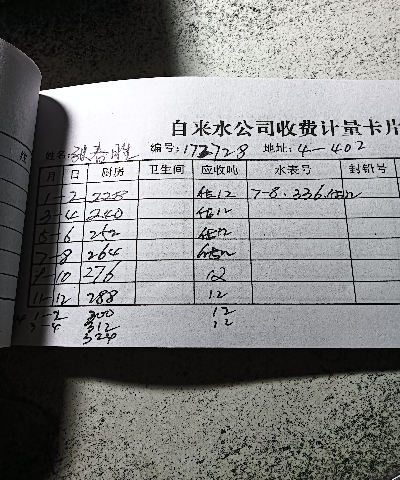 自来水公司收费计量卡片
姓名: 张春 编号: 172728 地址: 4-402
月 日 厨房 卫生间 应收吨 水表号 封铅号
1-2 228 估12 7-8.336.估12
3-4 240 估12
5-6 252 估12
7-8 264 估12
9-10 276 12
11-12 288 12
1-2 300 12
3-4 312 12
324